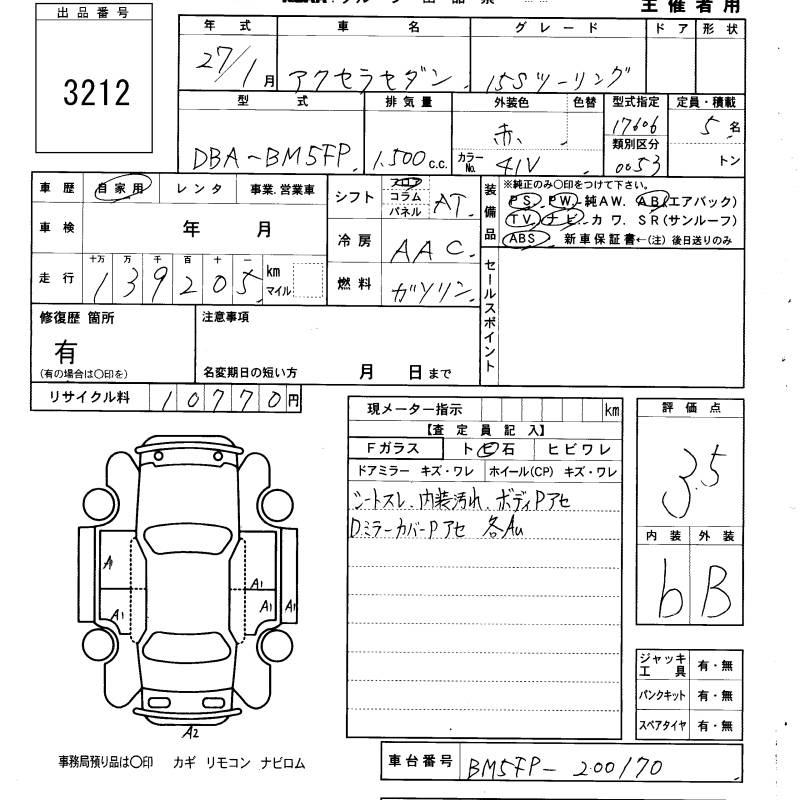 主催者用
出品番号
3212
年式 車名 グレード ドア 形状
27/1月 アクセラセダン 15Sツーリング
型式 排気量 外装色 色替 型式指定 定員・積載
DBA-BM5FP 1,500c.c. 赤 17606 5名
カラーNo. 41V 類別区分 0053 トン
車歴 自家用 レンタ 事業.営業車
シフト フロア コラム パネル AT
装備品 ※純正のみ〇印をつけて下さい。
PS. PW. 純AW. AB(エアバック)
TV. ナビ. カワ. SR(サンルーフ)
ABS 新車保証書←(注)後日送りのみ
車検 年 月
冷房 AAC
走行 十万 万 千 百 十 一
139205 km マイル
燃料 ガソリン
セールスポイント
修復歴 箇所 注意事項
有
(有の場合は〇印を) 名変期日の短い方 月 日まで
リサイクル料 10770円
現メーター指示 km
【査定員記入】
Fガラス トビ石 ヒビワレ
ドアミラー キズ・ワレ ホイール(CP) キズ・ワレ
シートスレ、内装汚れ、ボディPアセ
DミラーカバーPアセ 各Au
評価点
3.5
内装 外装
b B
A1 A1 A1 A1 A1
A2
ジャッキ工具 有・無
パンクキット 有・無
スペアタイヤ 有・無
事務局預り品は〇印 カギ リモコン ナビロム
車台番号 BM5FP-200170